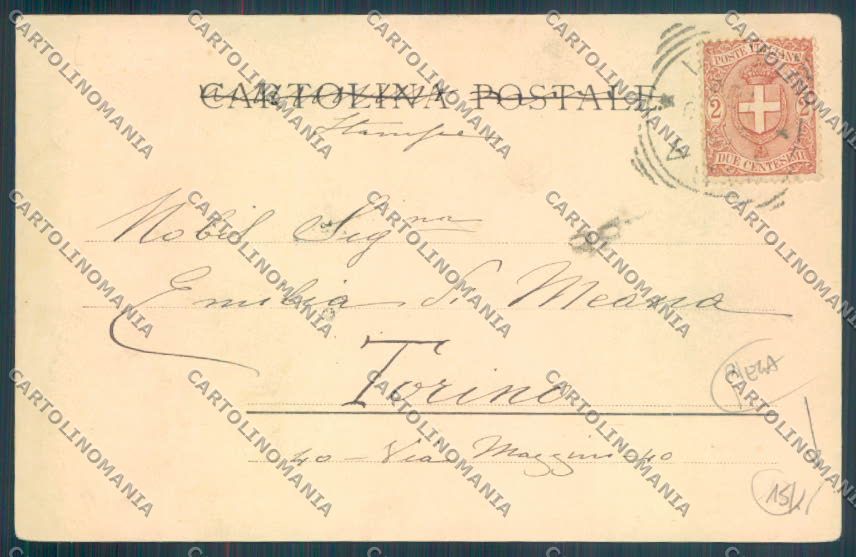 CARTOLINA POSTALE
Stampe
POSTE ITALIANE
2 2
DUE CENTESIMI
Nobil Signa
Emilia di Meana
Torino
40 - Via Mazzini 40
PIEGA
15/
CARTOLINOMANIA